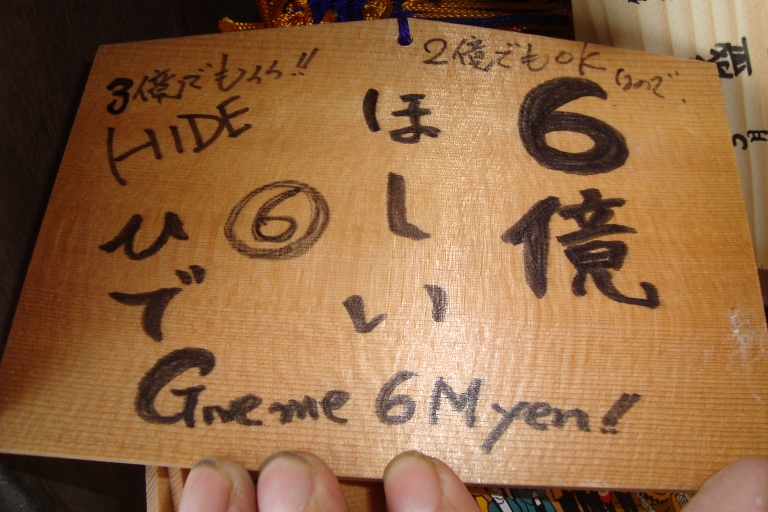 2億でもOKなので。
6億
ほしい
⑥
3億でもいい!!
HIDE
ひで
Give me 6M yen!!